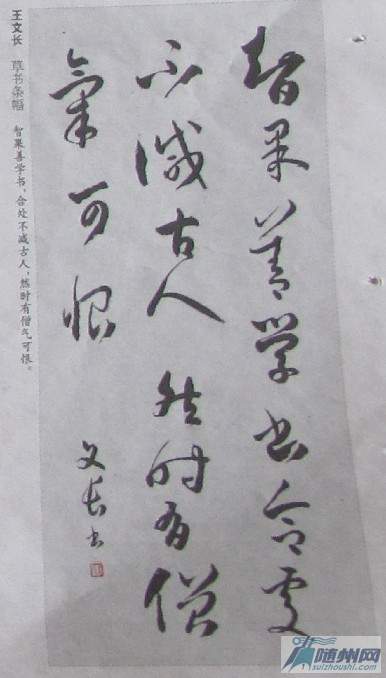 智果善学书合处
不減古人然时有僧
氣可恨
文长书
王文长 草书条幅 智果善学书，合处不减古人，然时有僧气可恨。
随州网
suizhoushi.com